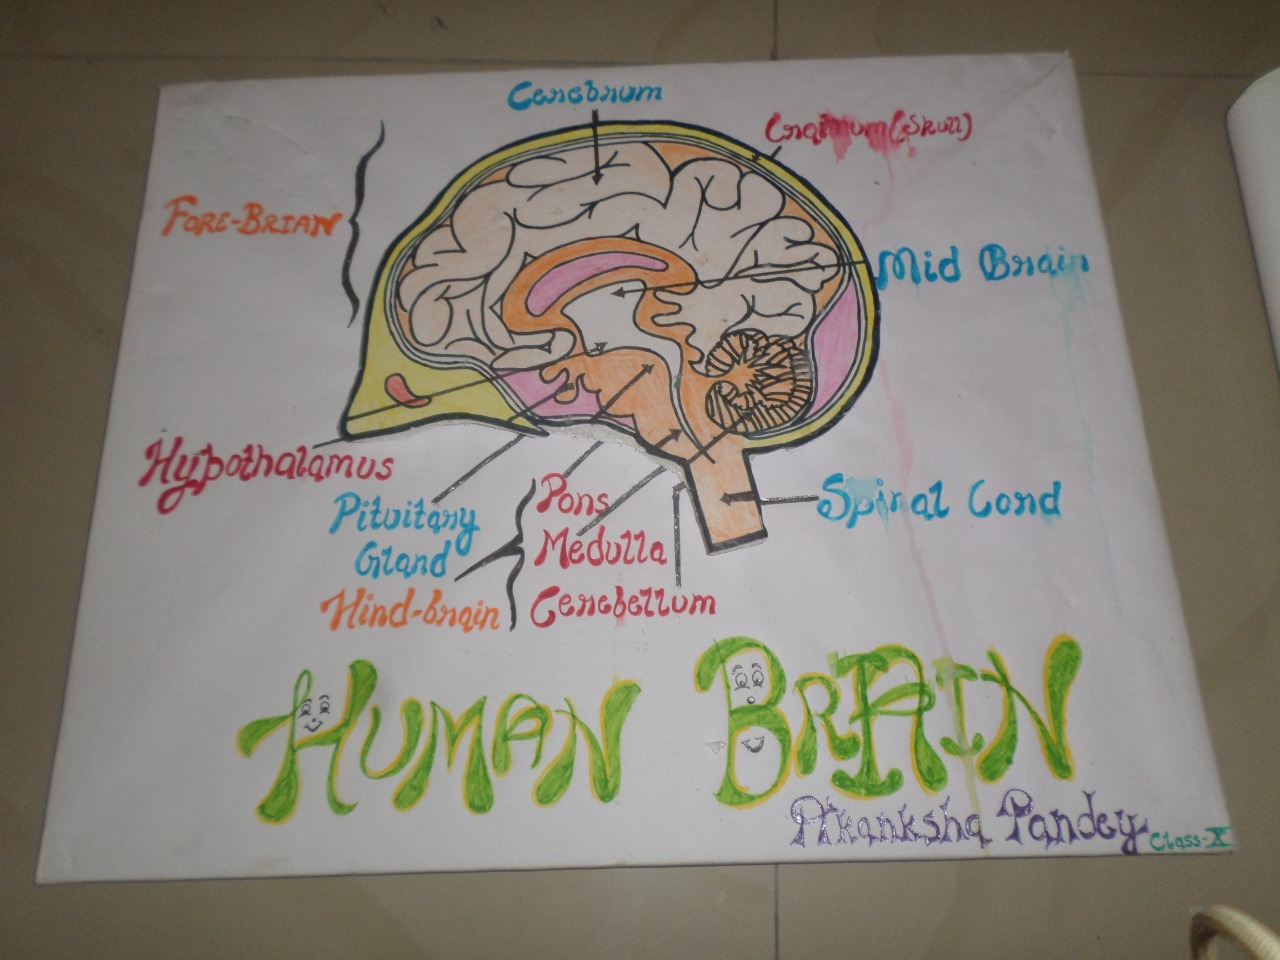 Cerebrum
Craimum(Skull)
FORE-BRIAN
Mid Brain
Hypothalamus
Pituitary
Gland
Hind-brain
Pons
Medulla
Cerebellum
Spinal Cord
HUMAN BRAIN
Akanksha Pandey
Class-X